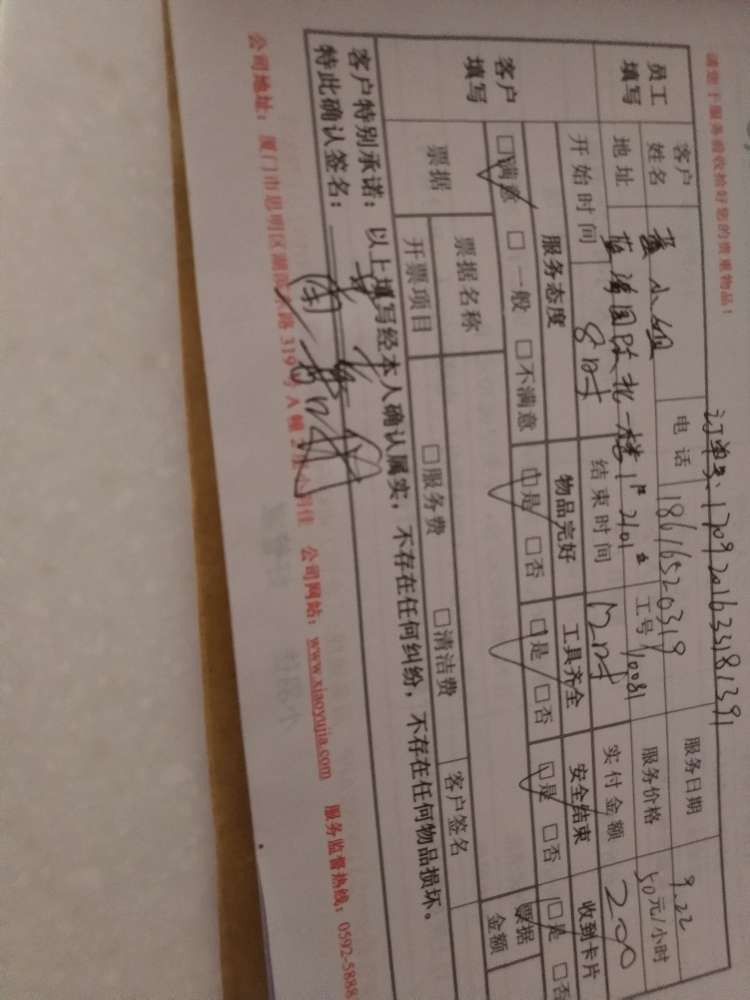 请您于服务前收捡好您的贵重物品！
订单号：1709201633181391
员工填写 客户姓名 黄小姐 电话 18616520319 服务日期 9.22
地址 蓝湾国际 2101 工号 10081 服务价格 50元/小时
开始时间 8时 结束时间 12时 实付金额 200
客户填写 服务态度 物品完好 工具齐全 安全结束 收到卡片
□满意 □一般 □不满意 □是 □否 □是 □否 □是 □否 □是 □否
票据 票据名称 票据金额
开票项目 □服务费 □清洁费 客户签名
客户特别承诺：以上填写经本人确认属实，不存在任何纠纷，不存在任何物品损坏。
特此确认签名：
公司地址：厦门市思明区湖滨 路319号A幢 公司网站：www.xiaoyujia.com 服务监督热线：0592-5888